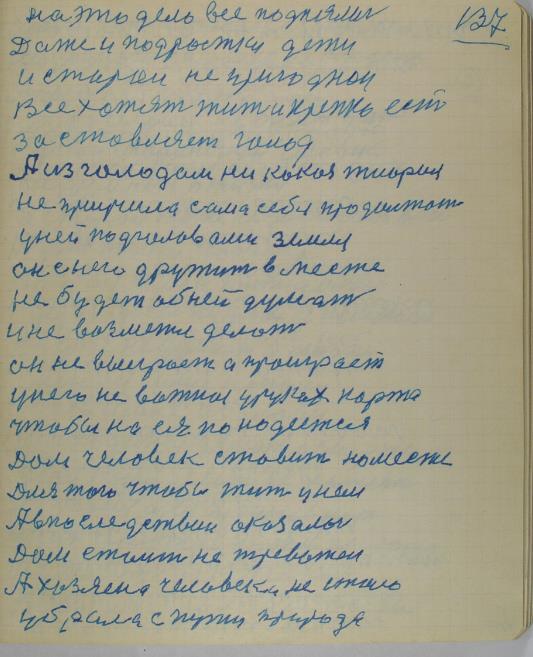 на это дело все поднялис
137
Даже и подростки дети
и старои не пригоднои
Все хотят жит и крепко ест
заставляет голод
А из голодом ни какоя тиория
не приучила сама себя продолжат
у ней под головами земля
он с него дружит в месте
не будет об ней думат
и не возмется делат
он не выиграет а проиграет
у него не важнои у руках карта
чтобы на ея понадеется
Дом человек ставит на месте
Для того чтобы жит у нем
А в последствии оказалос
Дом стоит не тревожен
А хозяена человека не стало
убрала с пути природа